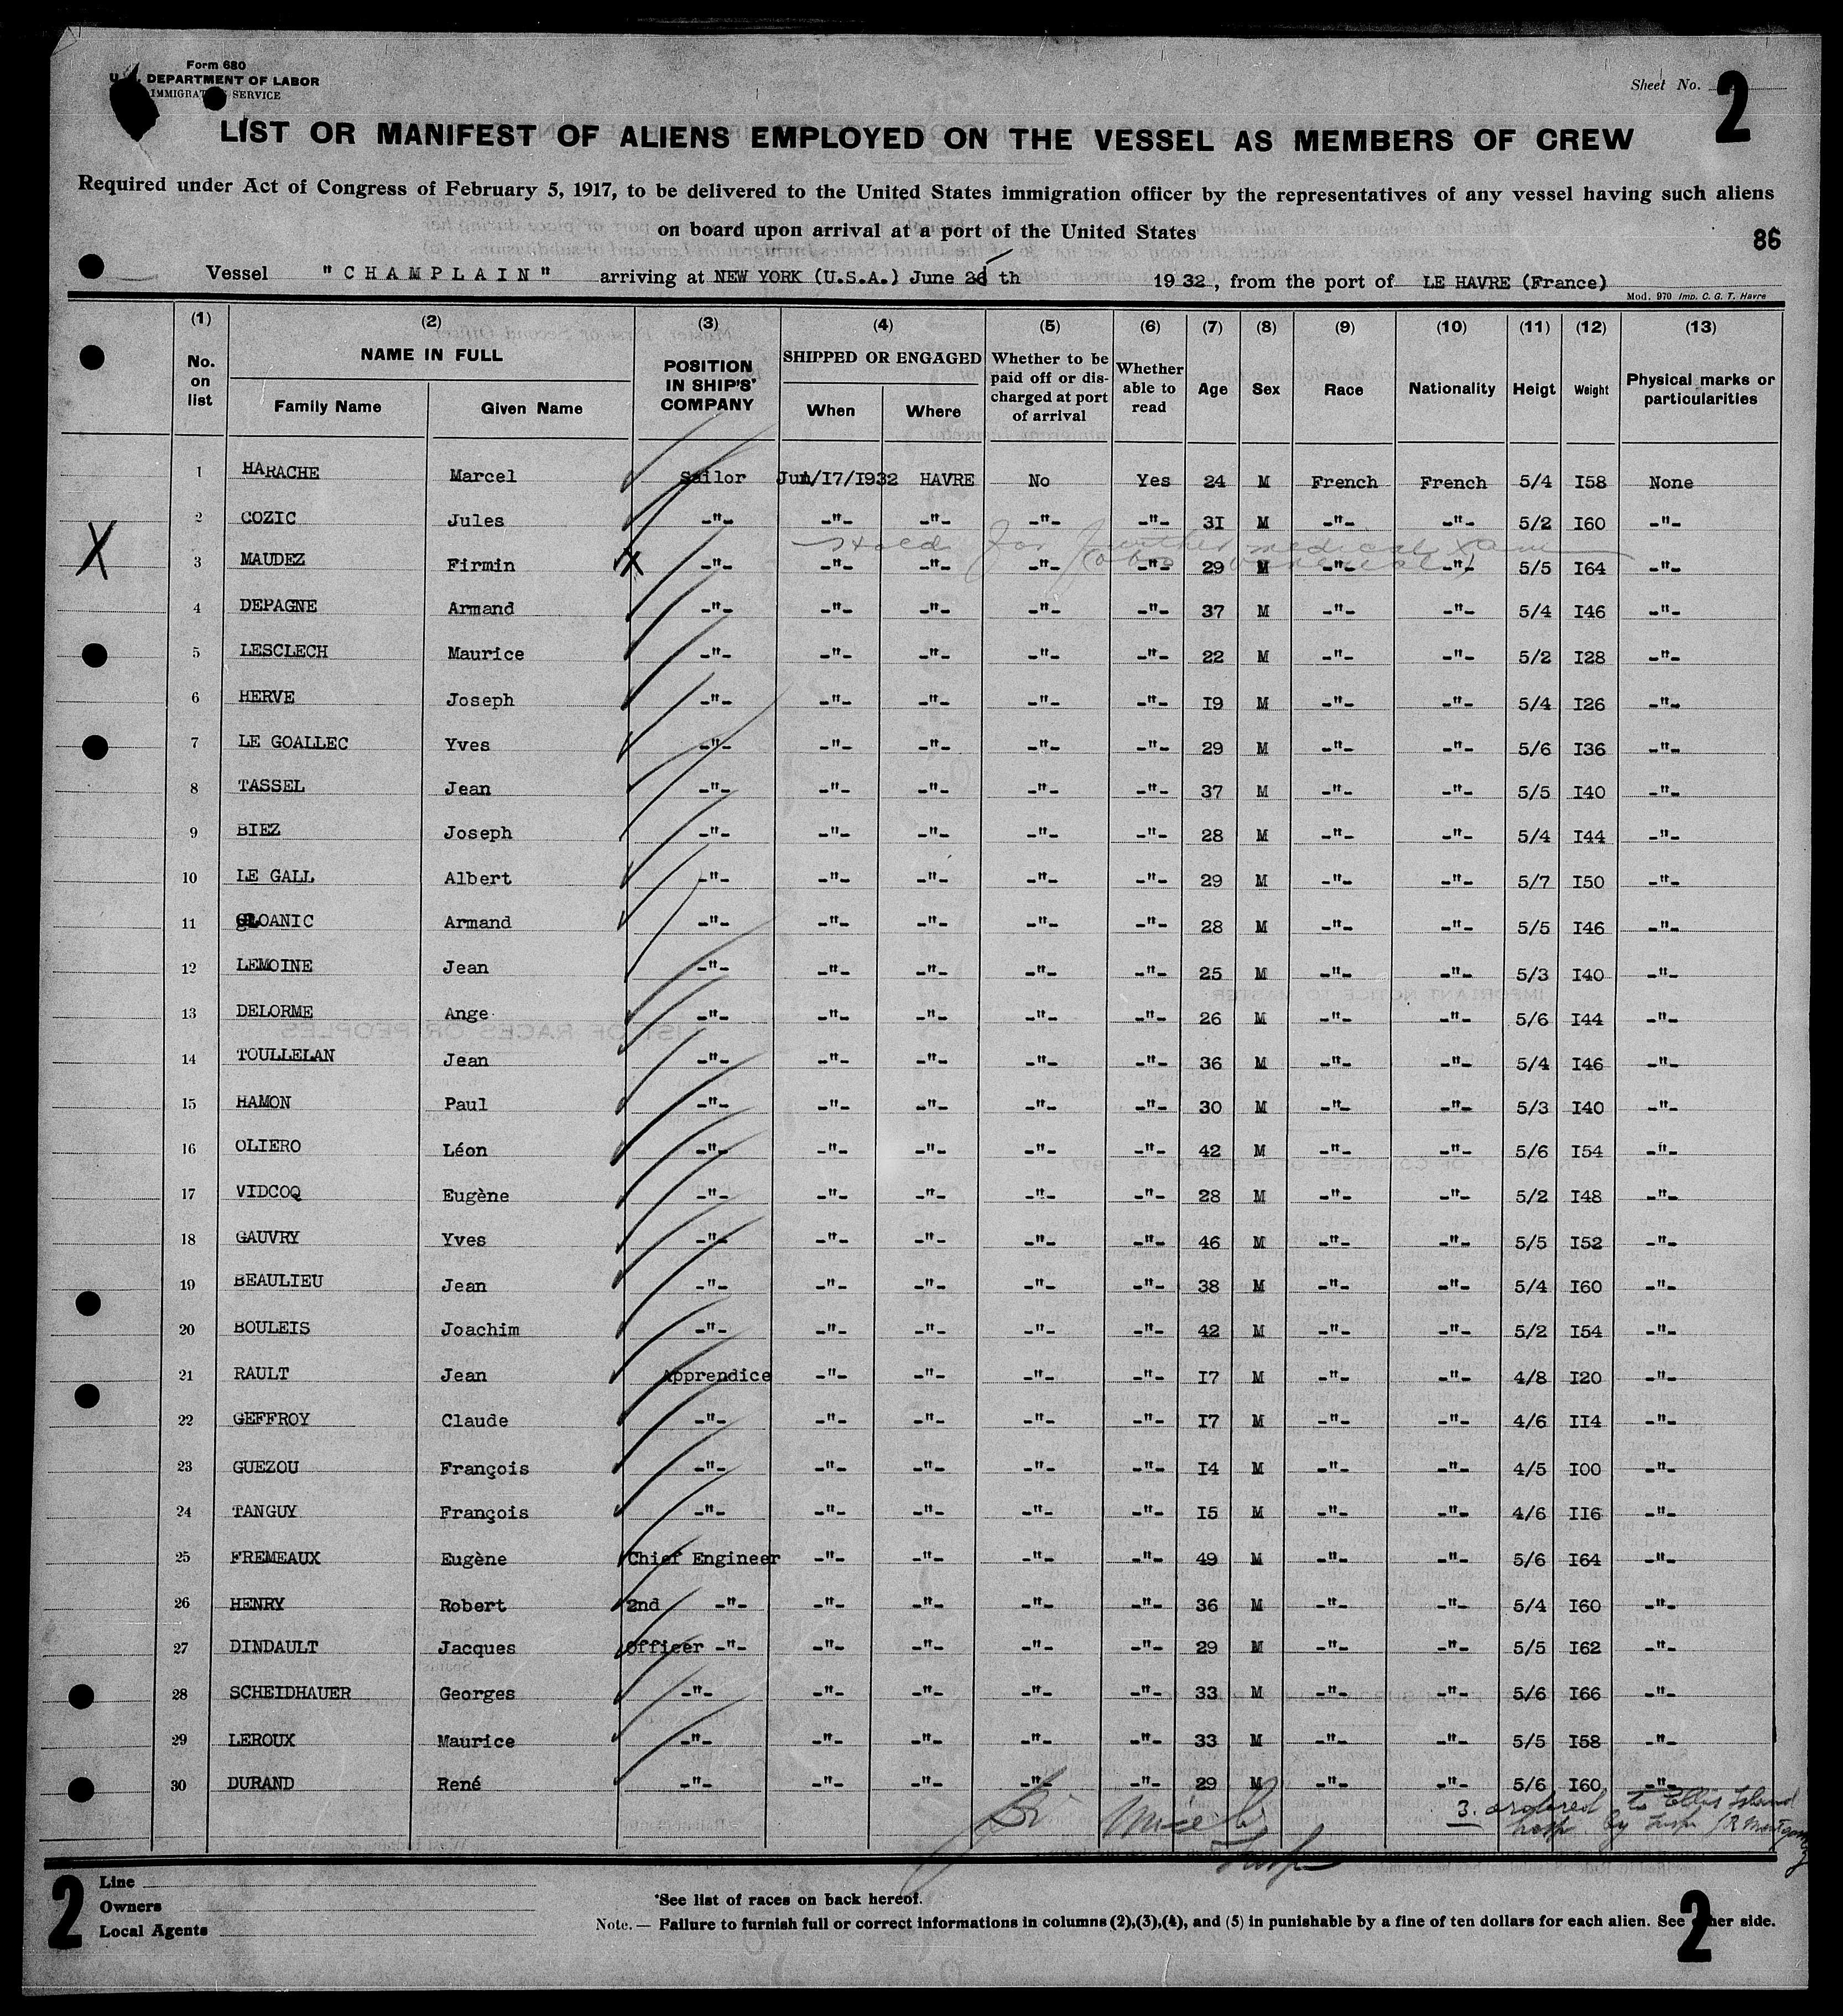 Form 680
U. S. DEPARTMENT OF LABOR
IMMIGRATION SERVICE
Sheet No. 2
LIST OR MANIFEST OF ALIENS EMPLOYED ON THE VESSEL AS MEMBERS OF CREW
Required under Act of Congress of February 5, 1917, to be delivered to the United States immigration officer by the representatives of any vessel having such aliens
on board upon arrival at a port of the United States
86
Vessel "CHAMPLAIN" arriving at NEW YORK (U.S.A.) June 25 th 1932, from the port of LE HAVRE (France)
Mod. 970 Imp. C. G. T. Havre
(1) (2) (3) (4) (5) (6) (7) (8) (9) (10) (11) (12) (13)
No. on list NAME IN FULL Family Name Given Name POSITION IN SHIP'S' COMPANY SHIPPED OR ENGAGED When Where Whether to be paid off or discharged at port of arrival Whether able to read Age Sex Race Nationality Heigt Weight Physical marks or particularities
1 HARACHE Marcel Sailor Jun/I7/I932 HAVRE No Yes 24 M French French 5/4 I58 None
2 COZIC Jules -"- -"- -"- -"- -"- 3I M -"- -"- 5/2 I60 -"-
Held for further medical exam
X 3 MAUDEZ Firmin X -"- -"- -"- -"- -"- 29 M -"- -"- 5/5 I64 -"-
4 DEPAGNE Armand -"- -"- -"- -"- -"- 37 M -"- -"- 5/4 I46 -"-
5 LESCLECH Maurice -"- -"- -"- -"- -"- 22 M -"- -"- 5/2 I28 -"-
6 HERVE Joseph -"- -"- -"- -"- -"- I9 M -"- -"- 5/4 I26 -"-
7 LE GOALLEC Yves -"- -"- -"- -"- -"- 29 M -"- -"- 5/6 I36 -"-
8 TASSEL Jean -"- -"- -"- -"- -"- 37 M -"- -"- 5/5 I40 -"-
9 BIEZ Joseph -"- -"- -"- -"- -"- 28 M -"- -"- 5/4 I44 -"-
10 LE GALL Albert -"- -"- -"- -"- -"- 29 M -"- -"- 5/7 I50 -"-
11 GLOANIC Armand -"- -"- -"- -"- -"- 28 M -"- -"- 5/5 I46 -"-
12 LEMOINE Jean -"- -"- -"- -"- -"- 25 M -"- -"- 5/3 I40 -"-
13 DELORME Ange -"- -"- -"- -"- -"- 26 M -"- -"- 5/6 I44 -"-
14 TOULLELAN Jean -"- -"- -"- -"- -"- 36 M -"- -"- 5/4 I46 -"-
15 HAMON Paul -"- -"- -"- -"- -"- 30 M -"- -"- 5/3 I40 -"-
16 OLIERO Léon -"- -"- -"- -"- -"- 42 M -"- -"- 5/6 I54 -"-
17 VIDCOQ Eugène -"- -"- -"- -"- -"- 28 M -"- -"- 5/2 I48 -"-
18 GAUVRY Yves -"- -"- -"- -"- -"- 46 M -"- -"- 5/5 I52 -"-
19 BEAULIEU Jean -"- -"- -"- -"- -"- 38 M -"- -"- 5/4 I60 -"-
20 BOULEIS Joachim -"- -"- -"- -"- -"- 42 M -"- -"- 5/2 I54 -"-
21 RAULT Jean Apprendice -"- -"- -"- -"- I7 M -"- -"- 4/8 I20 -"-
22 GEFFROY Claude -"- -"- -"- -"- -"- I7 M -"- -"- 4/6 II4 -"-
23 GUEZOU François -"- -"- -"- -"- -"- I4 M -"- -"- 4/5 I00 -"-
24 TANGUY François -"- -"- -"- -"- -"- I5 M -"- -"- 4/6 II6 -"-
25 FREMEAUX Eugène Chief Engineer -"- -"- -"- -"- 49 M -"- -"- 5/6 I64 -"-
26 HENRY Robert 2nd -"- -"- -"- -"- -"- 36 M -"- -"- 5/4 I60 -"-
27 DINDAULT Jacques Officer -"- -"- -"- -"- -"- 29 M -"- -"- 5/5 I62 -"-
28 SCHEIDHAUER Georges -"- -"- -"- -"- -"- 33 M -"- -"- 5/6 I66 -"-
29 LEROUX Maurice -"- -"- -"- -"- -"- 33 M -"- -"- 5/5 I58 -"-
30 DURAND René -"- -"- -"- -"- -"- 29 M -"- -"- 5/6 I60 -"-
3. ordered to Ellis Island
hosp. by Insp. Montgomery
Insp
2
Line
Owners
Local Agents
*See list of races on back hereof.
Note. — Failure to furnish full or correct informations in columns (2),(3),(4), and (5) in punishable by a fine of ten dollars for each alien. See other side.
2